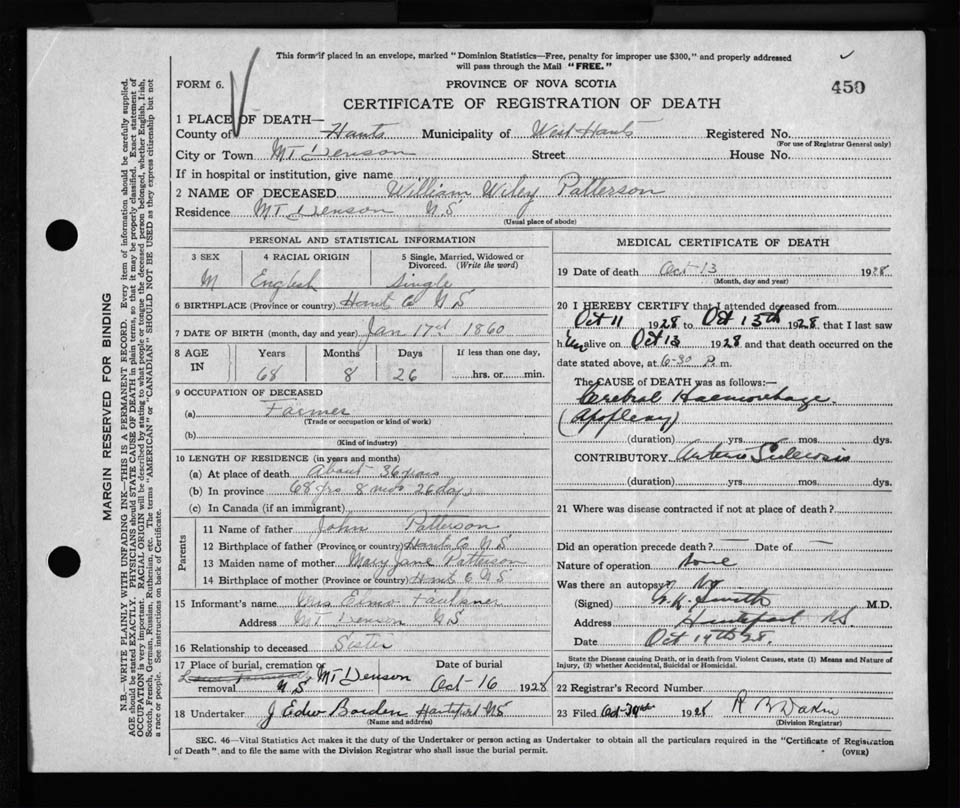 This form if placed in an envelope, marked "Dominion Statistics—Free, penalty for improper use $300," and properly addressed
will pass through the Mail "FREE."
FORM 6.
PROVINCE OF NOVA SCOTIA
450
CERTIFICATE OF REGISTRATION OF DEATH
1 PLACE OF DEATH—
County of Hants Municipality of West Hants Registered No.
(For use of Registrar General only)
City or Town MT Denson Street House No.
If in hospital or institution, give name
2 NAME OF DECEASED William Wiley Patterson
Residence MT Denson N.S
(Usual place of abode)
PERSONAL AND STATISTICAL INFORMATION
3 SEX 4 RACIAL ORIGIN 5 Single, Married, Widowed or
Divorced. (Write the word)
M English Single
6 BIRTHPLACE (Province or country) Hants Co N S
7 DATE OF BIRTH (month, day and year) Jan 17th 1860
8 AGE IN Years Months Days If less than one day,
68 8 26 hrs. or min.
9 OCCUPATION OF DECEASED
(a) Farmer
(Trade or occupation or kind of work)
(b)
(Kind of industry)
10 LENGTH OF RESIDENCE (in years and months)
(a) At place of death About 36 years
(b) In province 68 yrs 8 mos 26 days
(c) In Canada (if an immigrant)
Parents
11 Name of father John Patterson
12 Birthplace of father (Province or country) Hants Co N S
13 Maiden name of mother Mary Jane Patterson
14 Birthplace of mother (Province or country) Hants Co N S
15 Informant's name Mrs Elmo Faulkner
Address MT Denson N S
16 Relationship to deceased Sister
17 Place of burial, cremation or Date of burial
removal N.S, MT Denson Oct 16 1928
18 Undertaker J Edw Borden Hantsport NS
(Name and address)
MEDICAL CERTIFICATE OF DEATH
19 Date of death Oct 13 1928
(Month, day and year)
20 I HEREBY CERTIFY that I attended deceased from
Oct 11 1928 to Oct 13th 1928 that I last saw
him alive on Oct 13 1928 and that death occurred on the
date stated above, at 6-30 P. m.
The CAUSE OF DEATH was as follows:—
Crebral Haemorrhage.
(Apoplexy)
(duration) yrs. mos. dys.
CONTRIBUTORY Arterio Sclerosis
(duration) yrs. mos. dys.
21 Where was disease contracted if not at place of death?
Did an operation precede death? — Date of —
Nature of operation none
Was there an autopsy? No
(Signed) Smith M.D.
Address Hantsport N.S
Date Oct 14th 28.
State the Disease causing Death, or in death from Violent Causes, state (1) Means and Nature of
Injury, (2) whether Accidental, Suicidal or Homicidal.
22 Registrar's Record Number
23 Filed Oct 1928 R B Dakin
(Division Registrar)
SEC. 46—Vital Statistics Act makes it the duty of the Undertaker or person acting as Undertaker to obtain all the particulars required in the "Certificate of Registration
of Death" and to file the same with the Division Registrar who shall issue the burial permit.
(OVER)
MARGIN RESERVED FOR BINDING
N.B.—WRITE PLAINLY WITH UNFADING INK—THIS IS A PERMANENT RECORD. Every item of information should be carefully supplied.
AGE should be stated EXACTLY. PHYSICIANS should STATE CAUSE OF DEATH in plain terms, so that it may be properly classified. Exact statement of
OCCUPATION is very important. RACIAL ORIGIN will be described by stating to what people or tongue the deceased person belonged, whether English, Irish,
Scotch, French, German, Russian, Ruthenian, etc. The terms "AMERICAN" or "CANADIAN" SHOULD NOT BE USED as they express citizenship but not
a race or people. See instructions on back of Certificate.